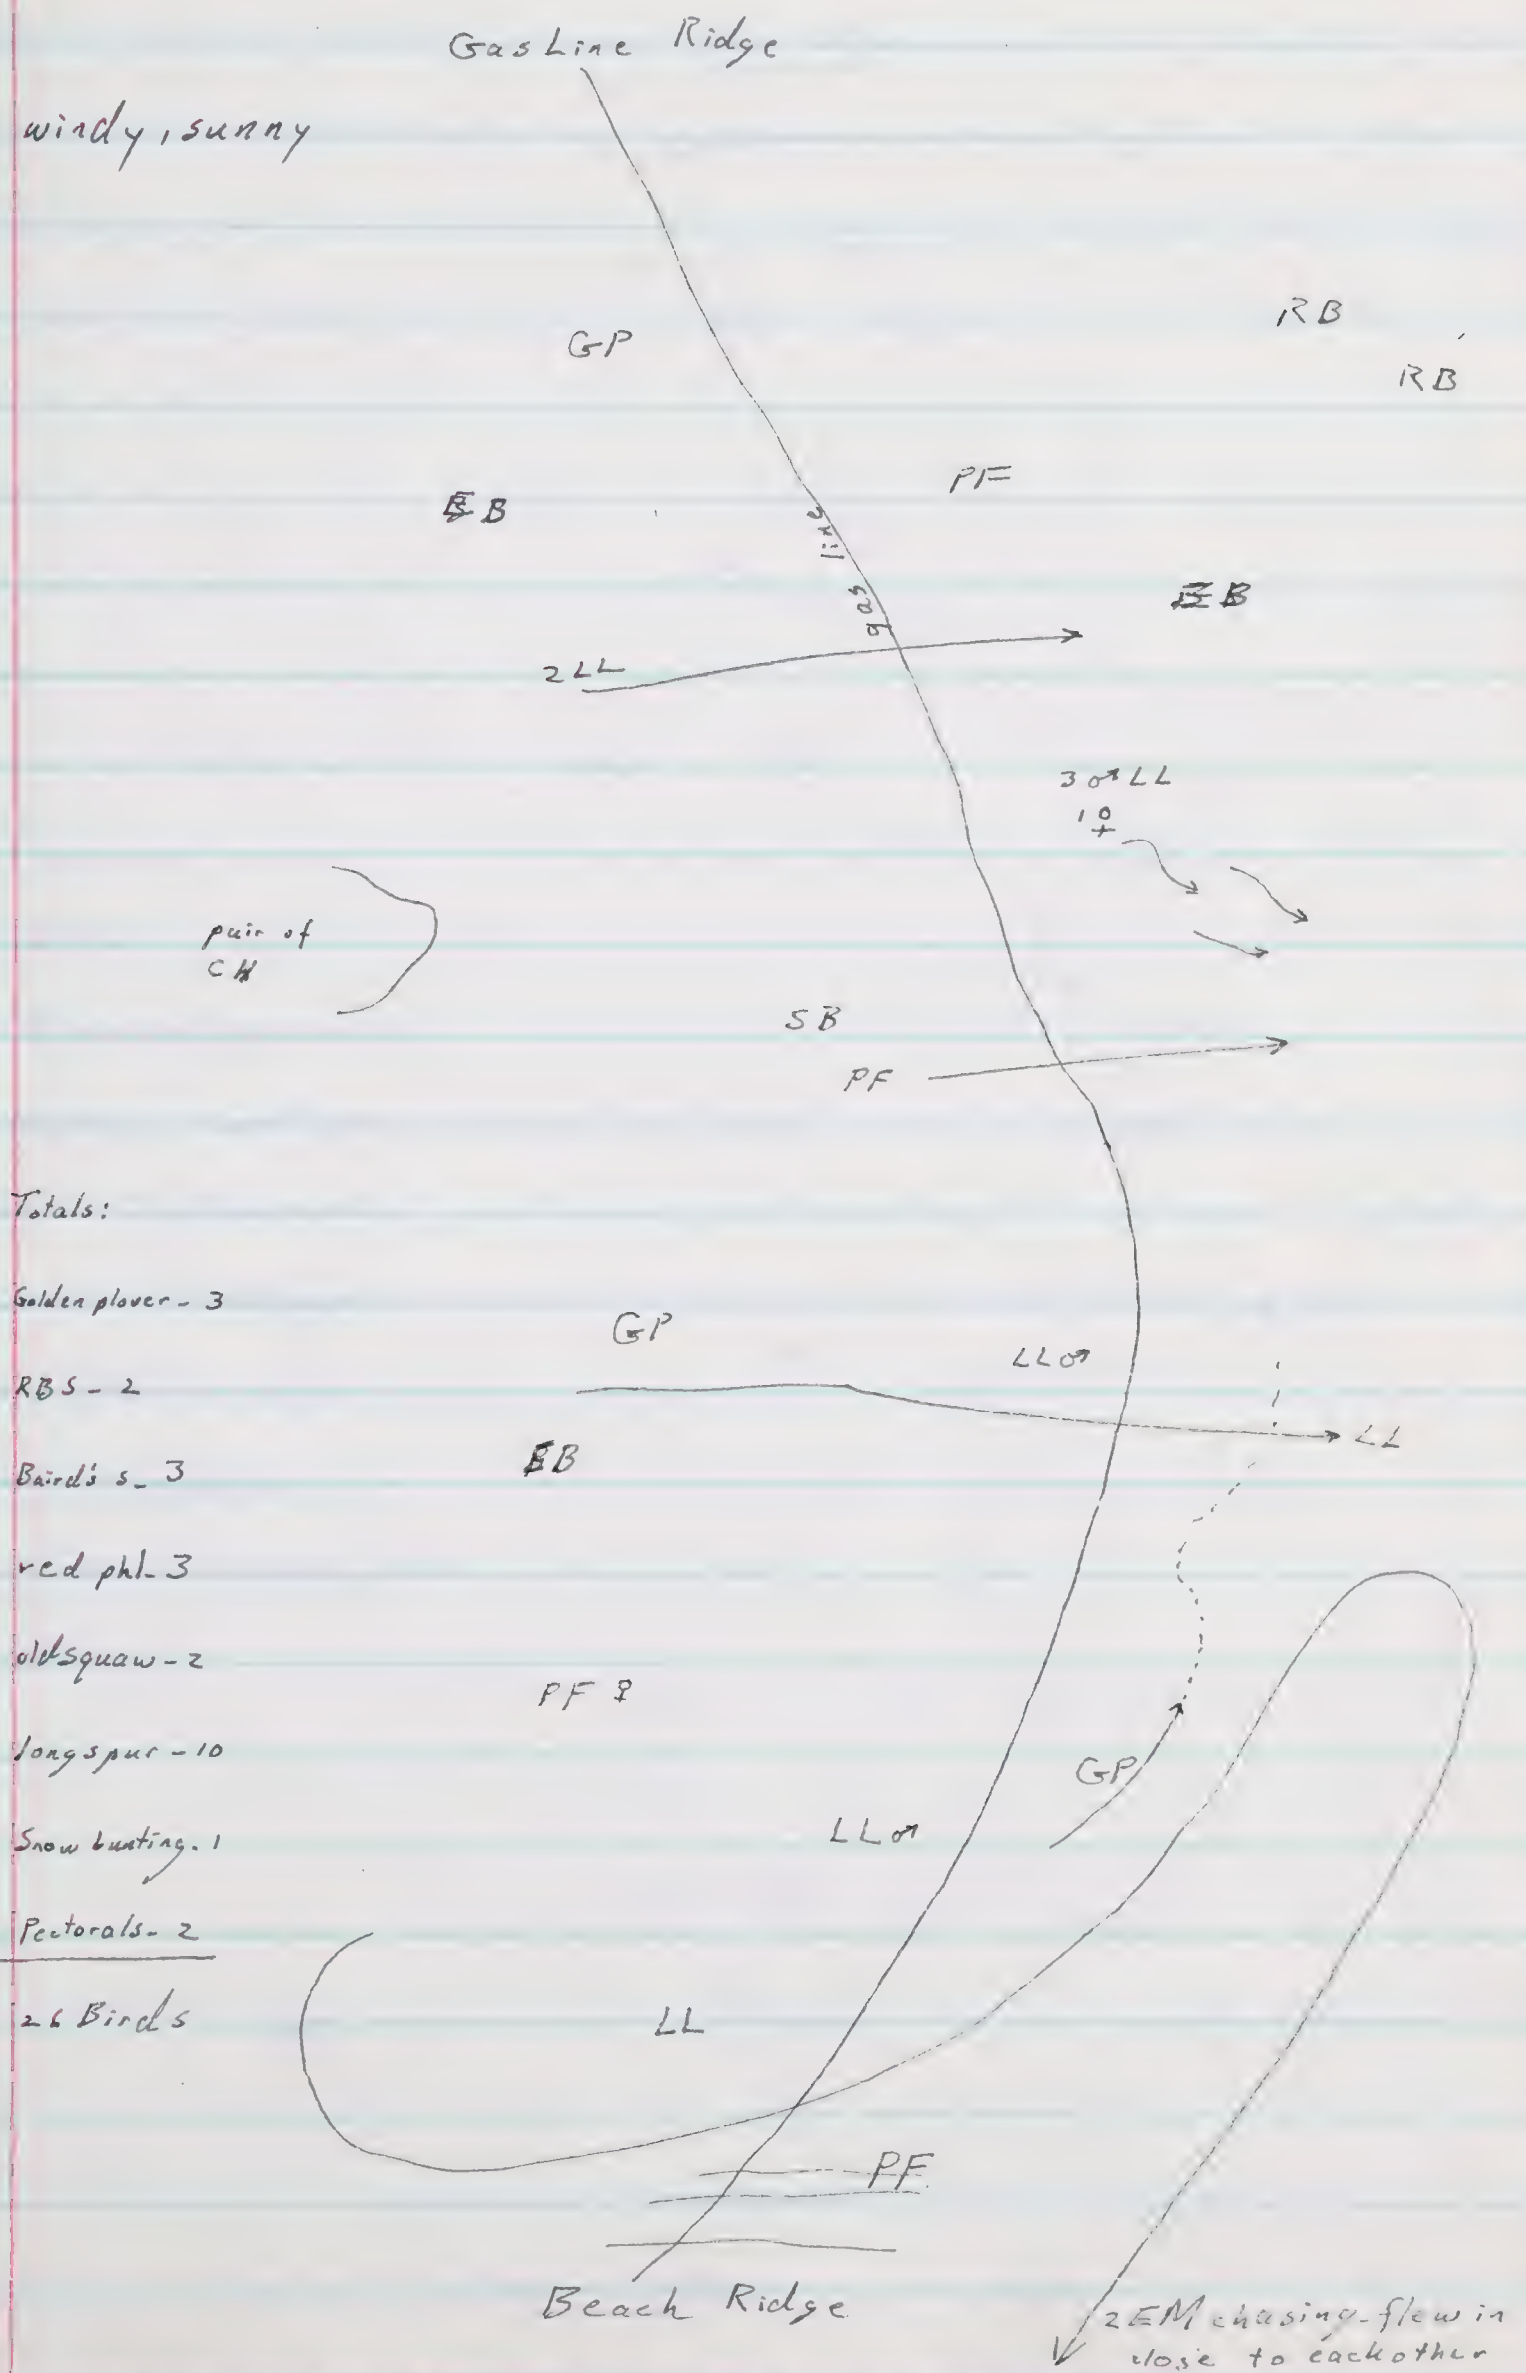 Gas Line Ridge
windy, sunny
RB
GP
RB
PF
EB
gas line
EB
2 LL
3 ♂ LL
1 ♀
pair of
CH
SB
PF
Totals:
Golden plover - 3
GP
LL ♂
RBS - 2
LL
EB
Baird's s - 3
red phl - 3
oldsquaw - 2
PF ♀
longspur - 10
GP
LL ♂
Snow bunting - 1
Pectorals - 2
26 Birds
LL
PF
Beach Ridge
2 EM chasing - flew in
close to eachother